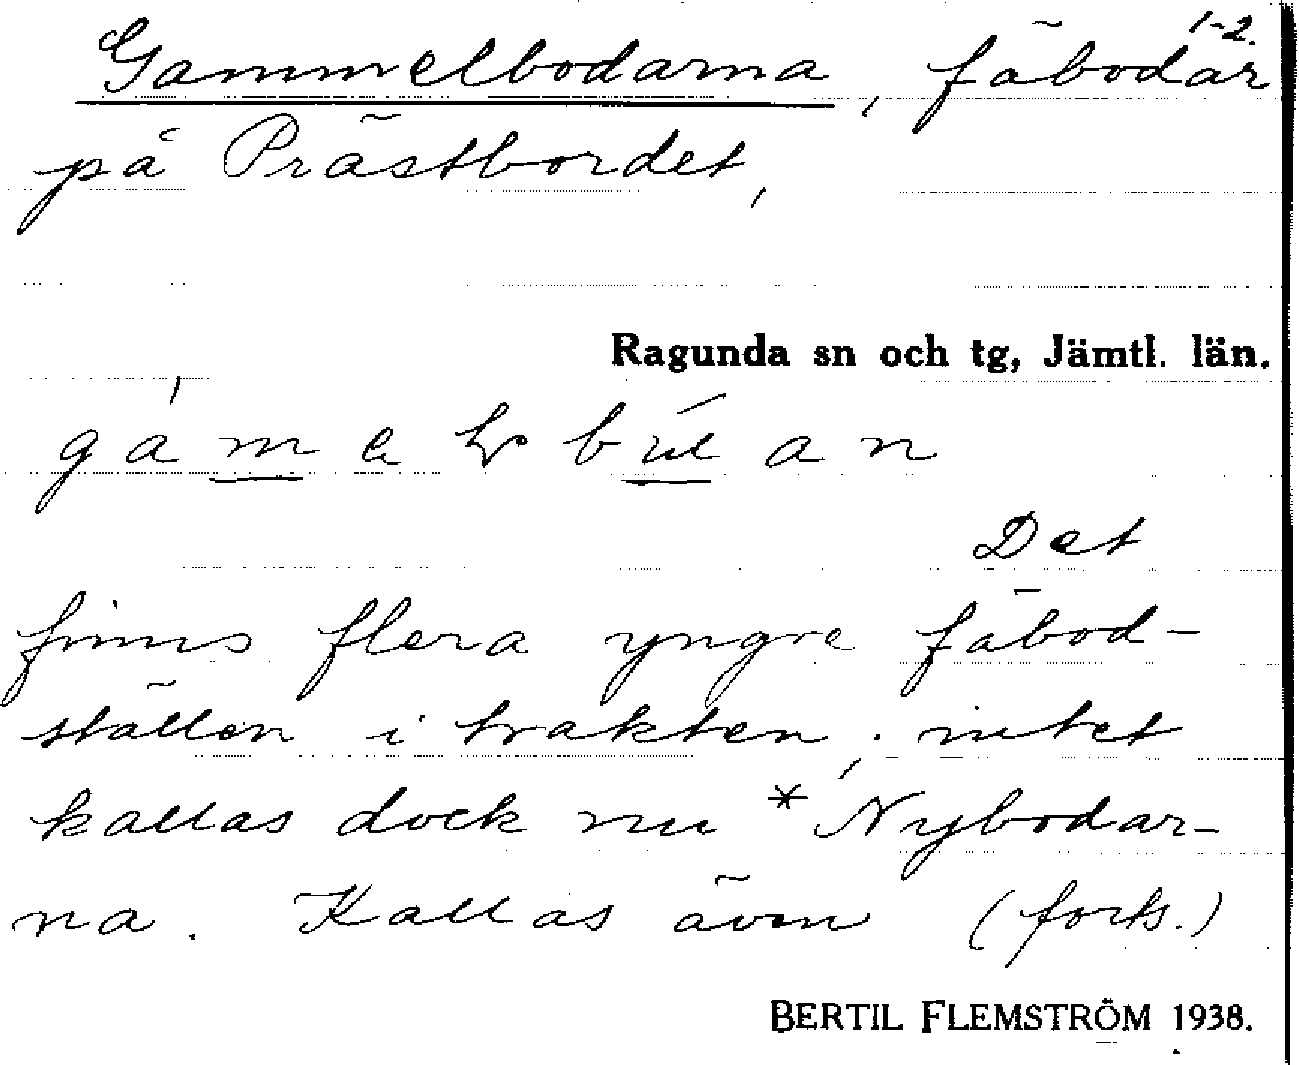 1-2.
Gammelbodarna, fäbodar
på Prästbordet,
Ragunda sn och tg, Jämtl. län.
Det
finns flera yngre fäbod-
ställen i trakten; intet
kallas dock nu *Nybodar-
na. Kallas även (forts.)
BERTIL FLEMSTRÖM 1938.